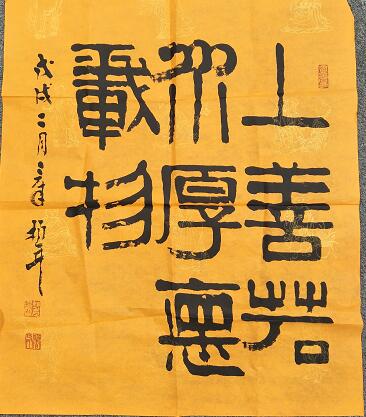 上善若
水厚德
載物
戊戌二月